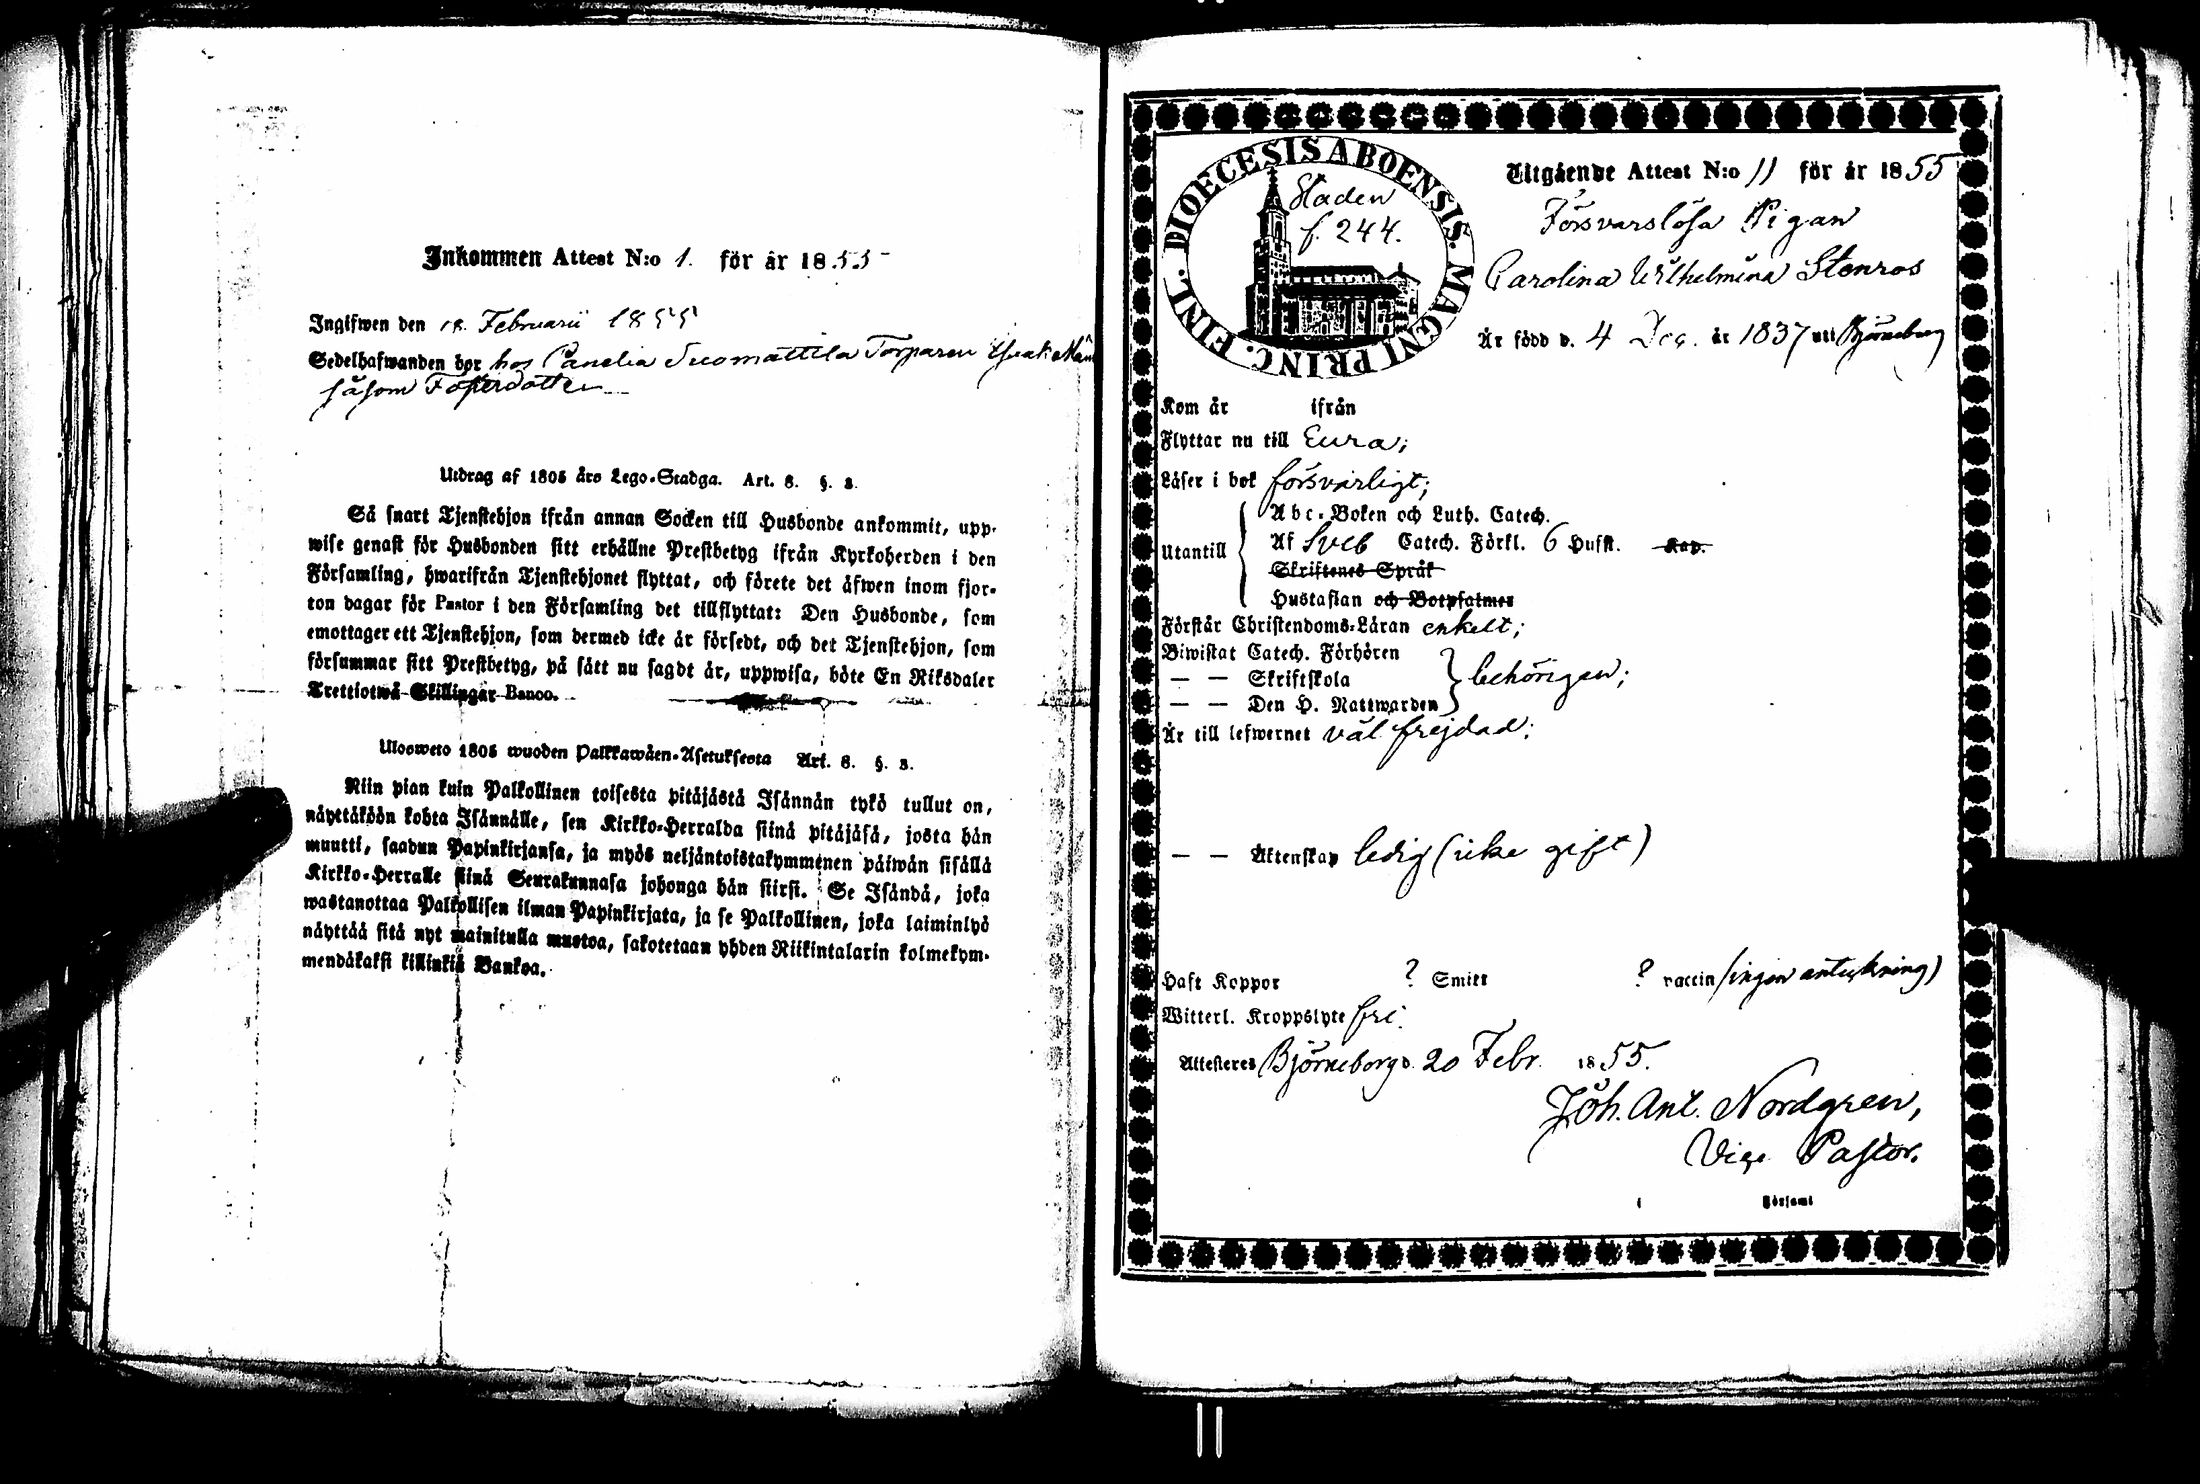 Inkommen Attest N:o 1. för år 1855
Ingifwen den 18. Februarii 1855
Sedelhafwanden bor hos Panelia Suomattila Torparen
såsom Fosterdotter
Utdrag af 1805 års Lego-Stadga. Art. 8. §. 3.
Så snart Tjenstehjon ifrån annan Socken till Husbonde ankommit, upp-
wise genast för Husbonden sitt erhållne Prestbetyg ifrån Kyrkoherden i den
Församling, hwarifrån Tjenstehjonet flyttat, och förete det äfwen inom fjor-
ton dagar för Pastor i den Församling det tillflyttat: Den Husbonde, som
emottager ett Tjenstehjon, som dermed icke är försedt, och det Tjenstehjon, som
försummar sitt Prestbetyg, på sätt nu sagdt är, uppwisa, böte En Riksdaler
Trettiotwå Skillingar Banco.
Ulosweto 1805 wuoden Palkkawäen-Asetuksesta Art. 8. §. 3.
Niin pian kuin Palkollinen toisesta pitäjästä Isännän tykö tullut on,
näyttäköön kohta Isännälle, sen Kirkko-Herralda siinä pitäjäsä, josta hän
muutti, saadun Papinkirjansa, ja myös neljäntoistakymmenen päiwän sisällä
Kirkko-Herralle siinä Seurakunnasa johonga hän siirsi. Se Isändä, joka
wastanottaa Palkollisen ilman Papinkirjata, ja se Palkollinen, joka laiminlyö
näyttää sitä nyt mainitulla muotoa, sakotetaan yhden Riikintalarin kolmekym-
mendäkaksi killinkiä Bankoa.
DIOECESIS ABOENSIS. MAGNI PRINC. FINL.
Staden
f. 244.
Utgående Attest N:o 11 för år 1855
Försvarslösa Pigan
Carolina Wilhelmina Stenros
Är född d. 4 Dec. år 1837 uti Björneborg
Kom år ifrån
Flyttar nu till Eura;
Läser i bok försvarligt;
Utantill
Abc-Boken och Luth. Catech.
Af Sveb Catech. Förkl. 6 Hufst. Kap.
Skriftenes Språk
Hustaflan och Botpsalmer
Förstår Christendoms-Läran enkelt;
Biwistat Catech. Förhören
— — Skriftskola behörigen;
— — Den H. Nattwarden
Är till lefwernet väl frejdad;
— — Äktenskap ledig (icke gift)
Haft Koppor ? Smitt ? vaccin (ingen anteckning)
Witterl. Kroppslyte fri.
Attesteres Björneborg d. 20 Febr. 1855.
Joh. Ant. Nordgren,
Vice Pastor.
i Församl